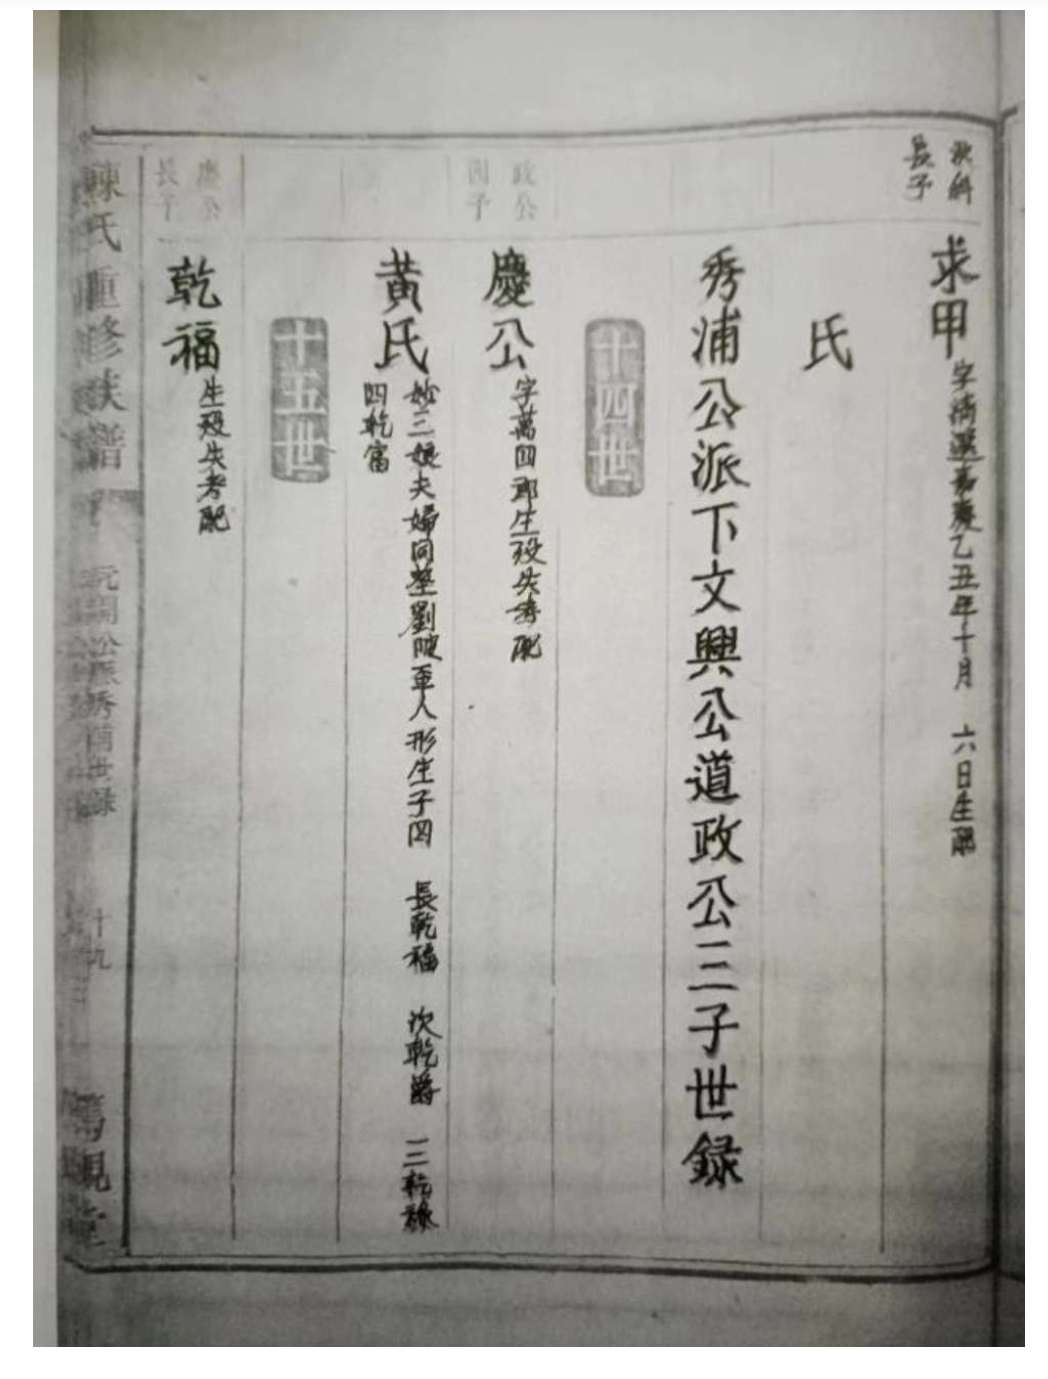 秋科
長子
求甲
字清選嘉慶乙丑年十月 六日生配
氏
秀浦公派下文興公道政公三子世録
十四世
政公
慶公
字萬四郎生殁失考配
黃氏
妙三娘夫婦同塋劉陂軍人形生子四 長乾福 次乾爵 三乾祿
四乾富
十五世
慶公
長子
乾福
生殁失考配
陳氏重修族譜
秀浦世録
十九
篤親堂